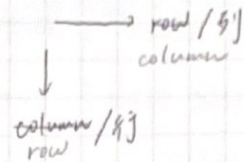 row / 列
column
column / 行
row